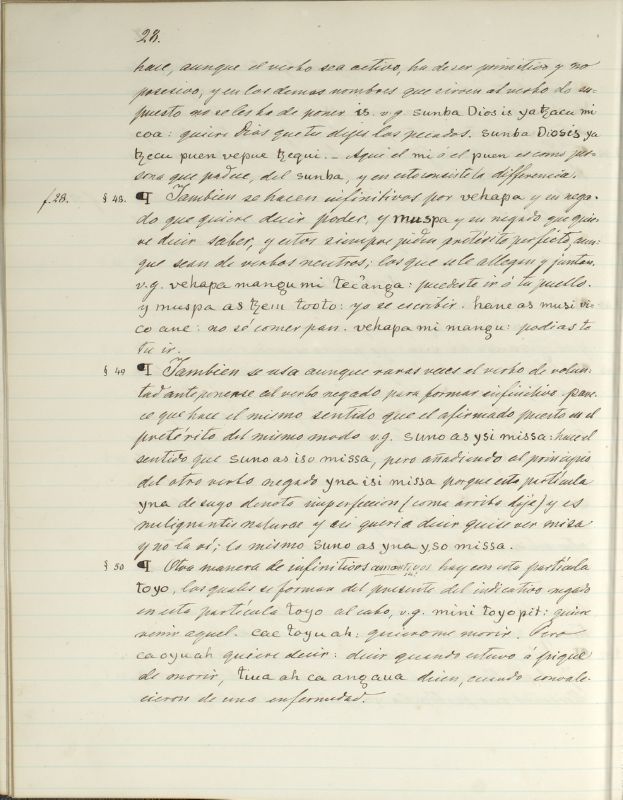 28.
hace, aunque el verbo sea activo, ha de ser primitivo y no
posesivo, y en los demas nombres que sirven al verbo de su-
puesto no se les ha de poner is. v.g. sunba Dios is yatzacu mi
coa: quiere Dios que tu dejes los pecados. sunba Diosis ya
tzecu puen vepue tzequi. – Aqui el mi ó el puen es como per-
sona que padece, del sunba, y en esto consiste la differencia.
f28. § 48. ¶ Tambien se hacen infinitivos por vehapa y en nega-
do que quiere decir poder, y muspa y en negado que quie-
re decir saber, y estos siempre piden pretérito perfecto, aun-
que sean de verbos neutros; los que se le allegan y juntan.
v.g. vehapa mangu mi tecanga: puedeste ir á tu pueblo.
y muspa as tzecu tooto: yo se escribir. hane as musi vi-
co ane: no sé comer pan. vehapa mi mangu: podias te
tu ir.
§ 49 ¶ Tambien se usa aunque raras veces el verbo de volun-
tad anteponerse al verbo negado para formar infinitivo. pare-
ce que hace el mismo sentido que el afirmado puesto en el
pretérito del mismo modo v.g. suno as ysi missa: hace el
sentido que suno as iso missa, pero añadiendo al principio
del otro verbo negado yna isi missa porque esta particula
yna de suyo denota imperfeccion (como arriba dije) y es
malignantis naturae y asi queria decir quise ver misa
y no la ví; lo mismo suno as yna yso missa.
§ 50 ¶ Otra manera de infinitivos hay con esta particula
toyo, los quales se forman del presente del indicativo negado
en esta particula toyo al cabo, v.g. mini toyopit: quiere
venir aquel. cae toyu ah: quierome morir. Pero
ca oyuah quiere decir: decir quando estuvo á pique
de morir, tuua ah ca angaua dicen, cuando convale-
cieron de una enfermedad.